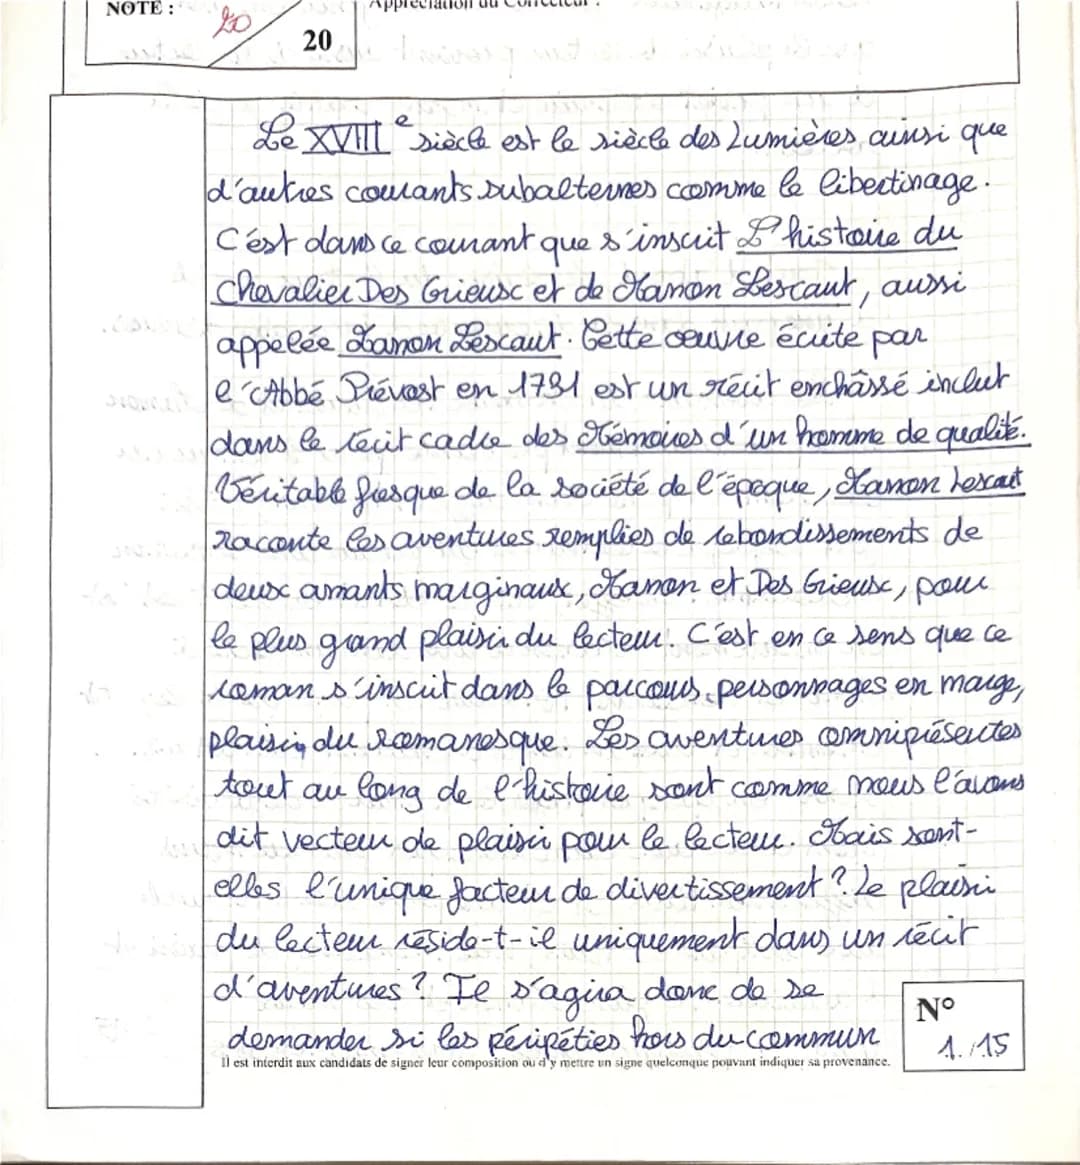 NOTE :
20
20
Appréciation du Correcteur :
Le XVIIIe siècle est le siècle des Lumières ainsi que
d'autres courants subalternes comme le libertinage.
C'est dans ce courant que s'inscrit L'histoire du
Chevalier Des Grieux et de Manon Lescaut, aussi
appelée Manon Lescaut. Cette œuvre écrite par
l'Abbé Prévost en 1731 est un récit enchâssé inclut
dans le récit cadre des Mémoires d'un homme de qualité.
Véritable fresque de la société de l'époque, Manon Lescaut
raconte les aventures remplies de rebondissements de
deux amants marginaux, Manon et Des Grieux, pour
le plus grand plaisir du lecteur. C'est en ce sens que ce
roman s'inscrit dans le parcours personnages en marge,
plaisir du romanesque. Les aventures omniprésentes
tout au long de l'histoire sont comme nous l'avons
dit vecteur de plaisir pour le lecteur. Mais sont-
elles l'unique facteur de divertissement ? Le plaisir
du lecteur réside-t-il uniquement dans un récit
d'aventures ? Il s'agira donc de se
demander si les péripéties hors du commun
N°
1./15
Il est interdit aux candidats de signer leur composition ou d'y mettre un signe quelconque pouvant indiquer sa provenance.